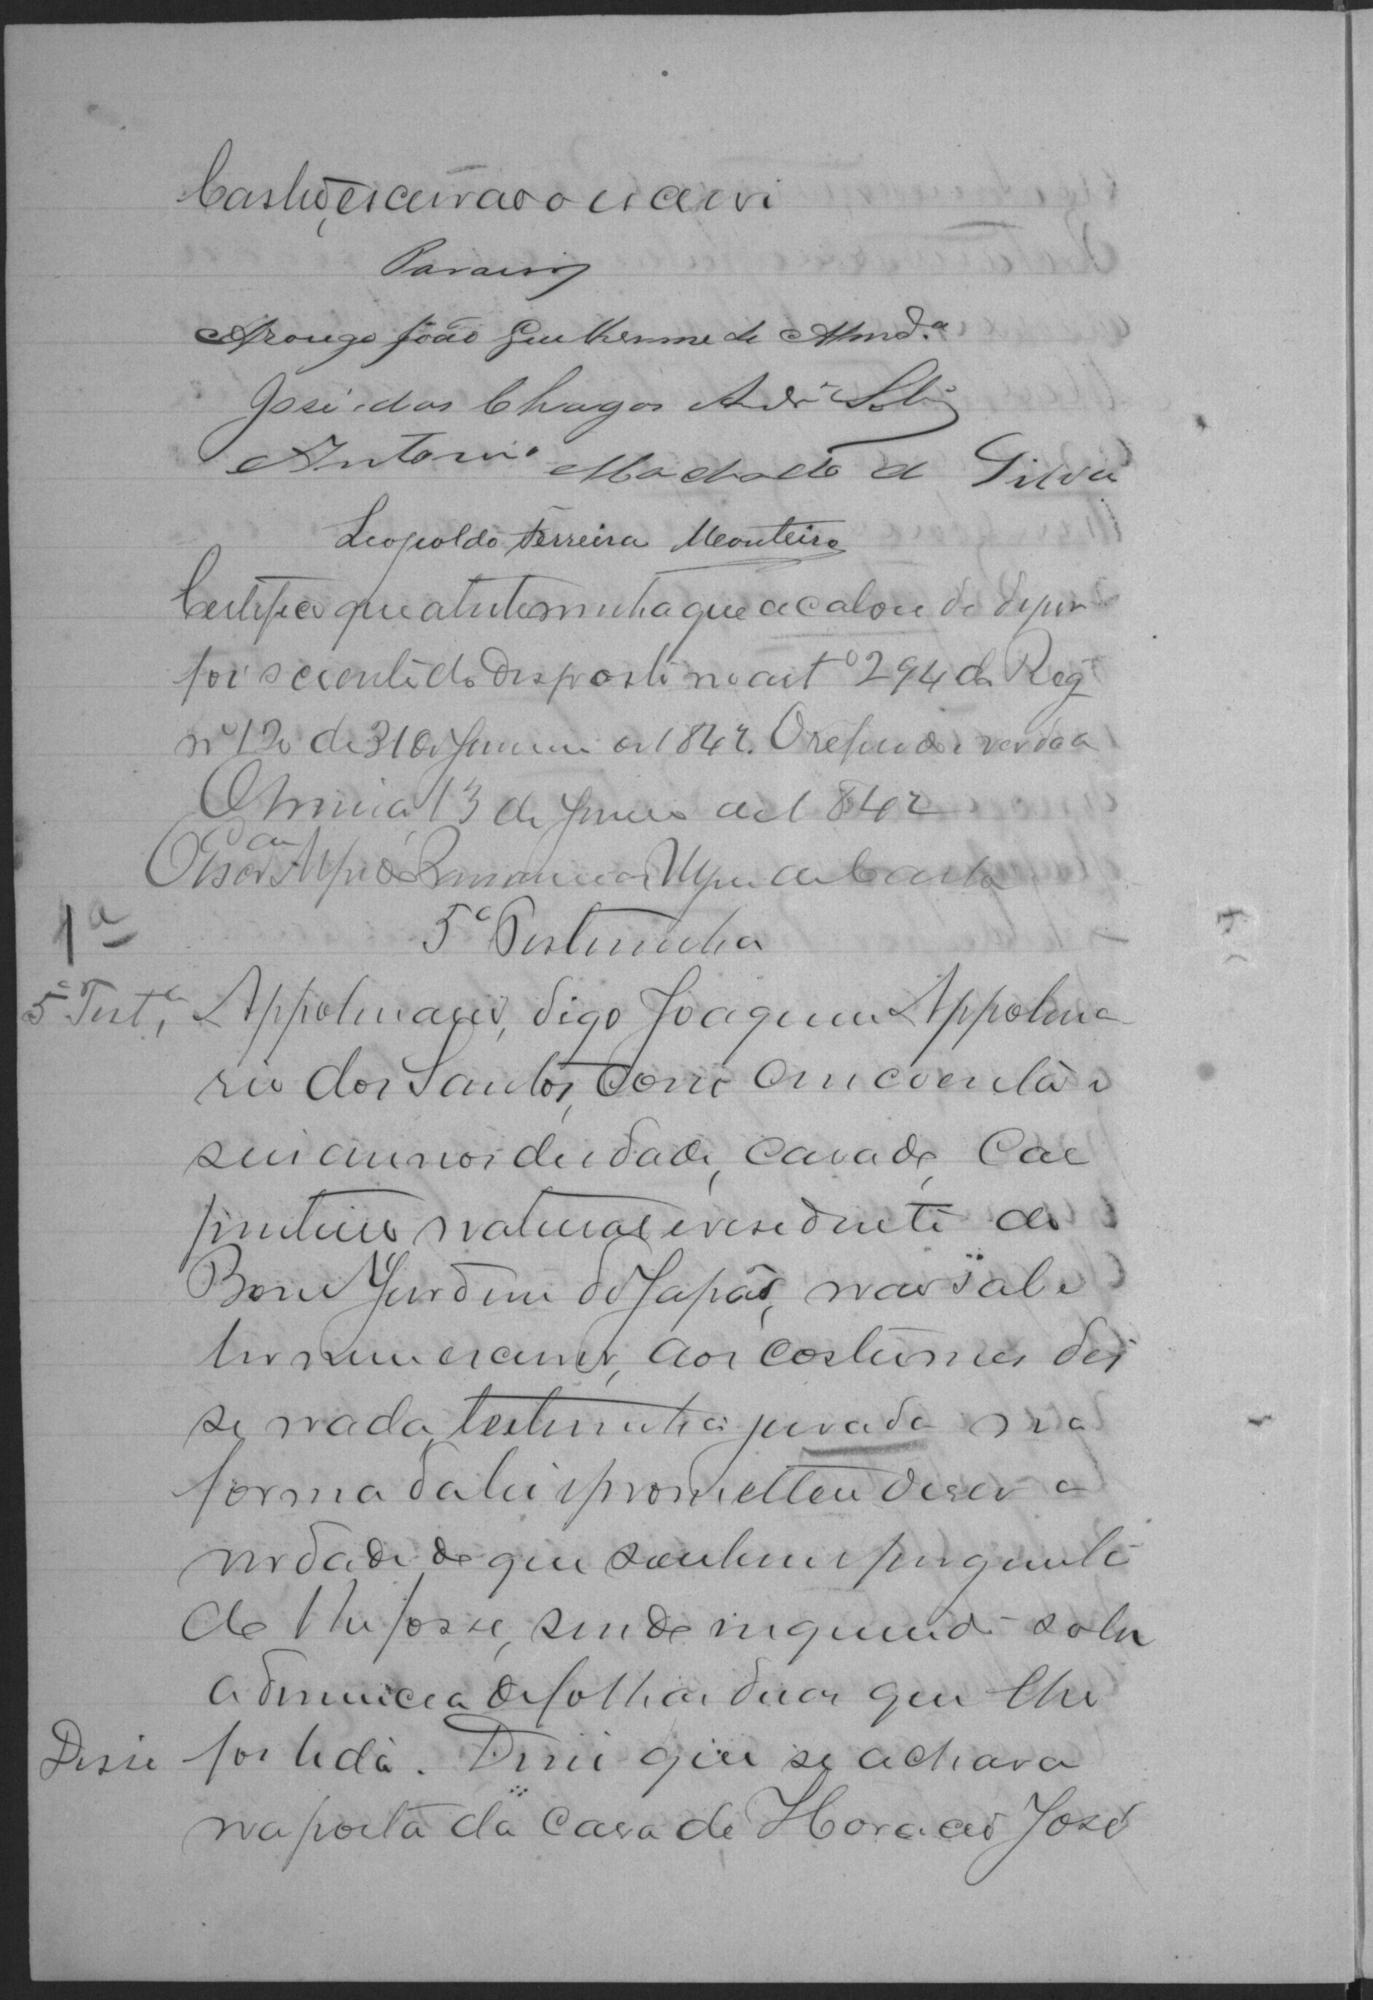 Castro, escrivão o escrevi
Paraiso
Arouge João Guilherme de Almd.ª
José das Chagas Andr.e
Antonio Machado d Silva
Leopoldo Ferreira Monteiro
Certifico que a testemunha que acabou de depor
foi sciente do disposto no art.º 294 do Reg
nº 120 de 31 de Janeiro de 1842. O referido é verdade
13 de Junho de 1842
O Escr.am
1ª
5ª Testemunha
5ª Test.ª Appolinario, digo Joaquim Appolina
rio dos Santos, com cincoenta e
seis annos de idade, casado, Car
pinteiro natural e residente do
Bom Jardim do Japão, não sabe
ler nem escrever, aos costumes dis
se nada, testemunha jurada na
forma da lei e prometteu dizer a
verdade do que soubesse e pergunta
do lhe fosse, sendo inquerido sobre
a denuncia de folhas duas que lhe
Disse foi lida. Disse que se achava
na porta da casa de Horacio José